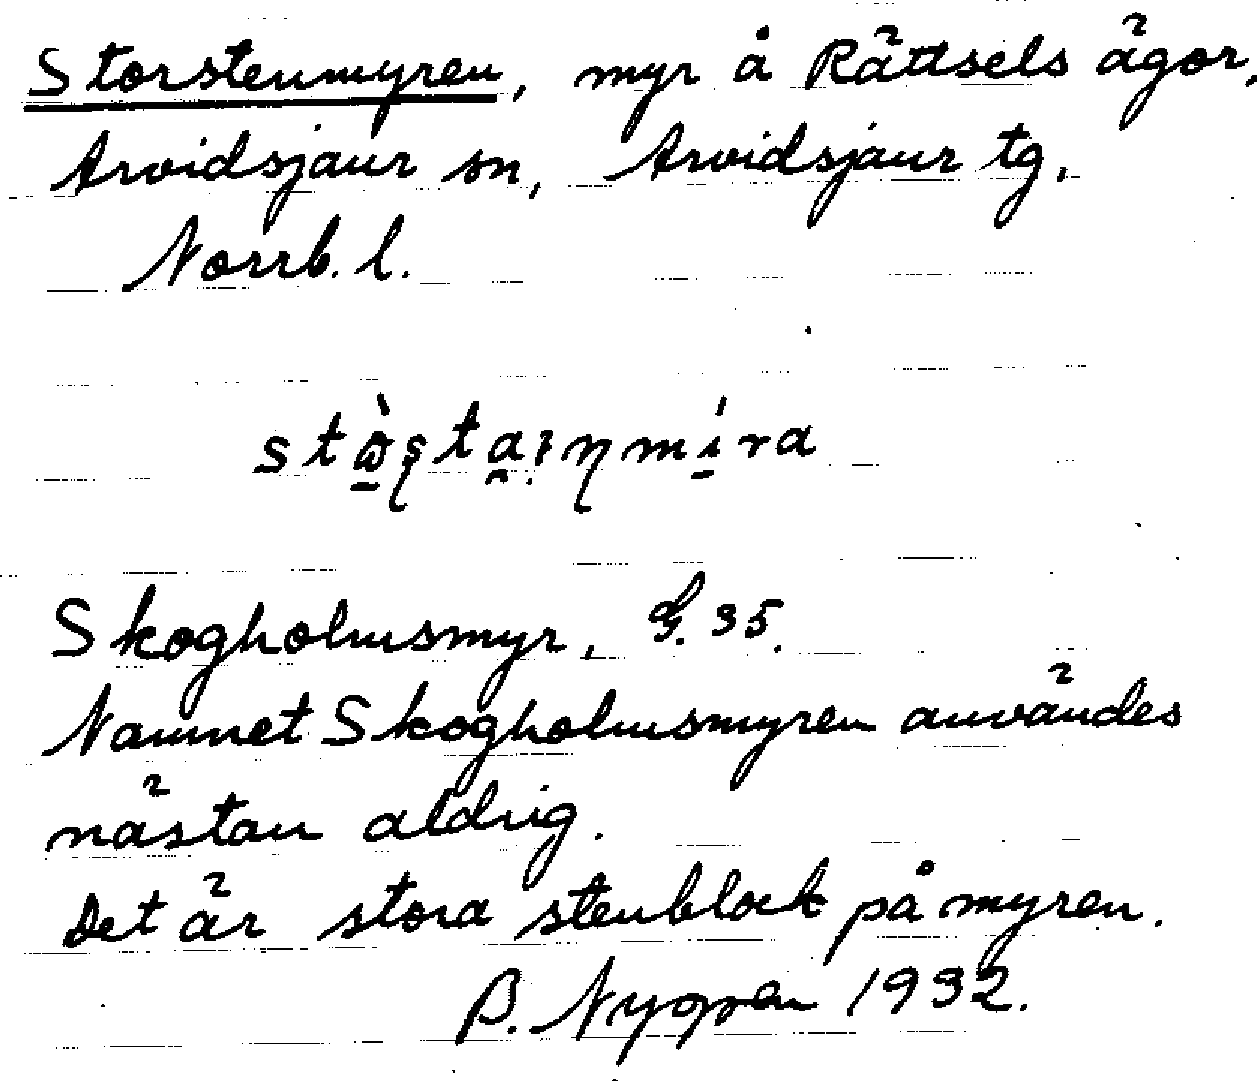 Storstenmyren, myr å Rättsels ägor,
Arvidsjaur sn, Arvidsjaur tg,
Norrb. l.
Skogholmsmyr, G. 35.
Namnet Skogholmsmyren användes
nästan aldrig.
Det är stora stenblock på myren.
B. Nygren 1932.